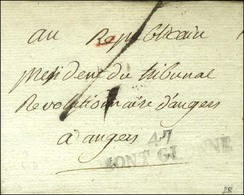 au Republicain
president du tribunal
Revolutionnaire d'angers
a angers
47
MONT GLONNE